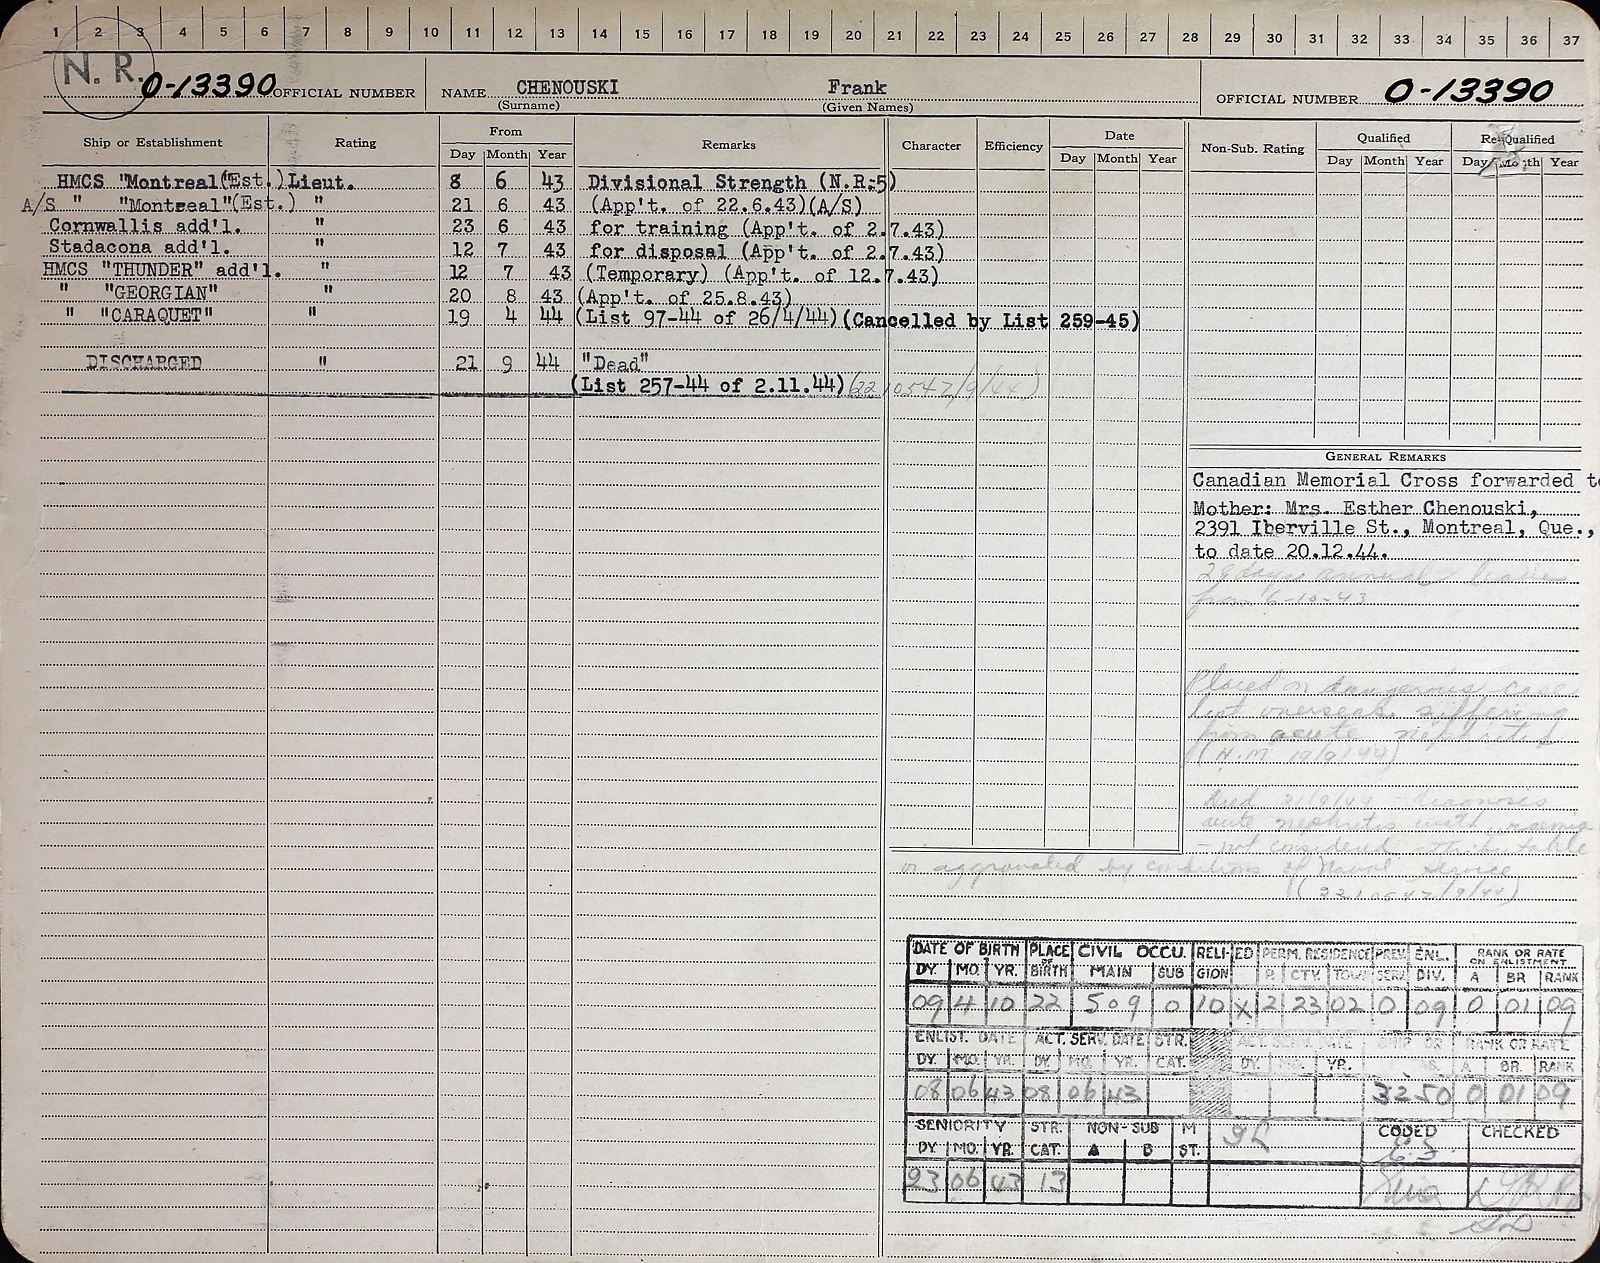 1 2 3 4 5 6 7 8 9 10 11 12 13 14 15 16 17 18 19 20 21 22 23 24 25 26 27 28 29 30 31 32 33 34 35 36 37
N. R. O-13390 OFFICIAL NUMBER NAME CHENOUSKI Frank OFFICIAL NUMBER O-13390
(Surname) (Given Names)
Ship or Establishment Rating From Remarks Character Efficiency Date Non-Sub. Rating Qualified Re-Qualified
Day Month Year Day Month Year Day Month Year Day Month Year
HMCS "Montreal"(Est.) Lieut. 8 6 43 Divisional Strength (N.R:5)
A/S " "Montreal"(Est.) " 21 6 43 (App't. of 22.6.43)(A/S)
Cornwallis add'l. " 23 6 43 for training (App't. of 2.7.43)
Stadacona add'l. " 12 7 43 for disposal (App't. of 2.7.43)
HMCS "THUNDER" add'l. " 12 7 43 (Temporary) (App't. of 12.7.43)
" "GEORGIAN" " 20 8 43 (App't. of 25.8.43)
" "CARAQUET" " 19 4 44 (List 97-44 of 26/4/44) (Cancelled by List 259-45)
DISCHARGED " 21 9 44 "Dead"
(List 257-44 of 2.11.44) (221054Z/9/44)
GENERAL REMARKS
Canadian Memorial Cross forwarded to
Mother: Mrs. Esther Chenouski,
2391 Iberville St., Montreal, Que.,
to date 20.12.44.
28 days annual leave
from 6-10-43
Placed on dangerous case
list overseas suffering
from acute nephritis
(H.M 19/9/44)
Died 21/9/44 - diagnosis
acute nephritis with
- not considered attributable
or aggravated by conditions of Naval Service
(221054Z/9/44)
DATE OF BIRTH PLACE OF BIRTH CIVIL OCCU. RELIGION ED PERM. RESIDENCE PREV. SERV. ENL. DIV. RANK OR RATE ON ENLISTMENT
DY. MO. YR. MAIN SUB P. CTY. TOWN A BR RANK
09 4 10 22 509 0 10 X 2 23 02 0 09 0 01 09
ENLIST. DATE ACT. SERV. DATE STR. CAT. ACT. SERV. DATE SHIP OR RANK OR RATE
DY. MO. YR. DY. MO. YR. DY. MO. YR. A BR. RANK
08 06 43 08 06 43 3250 0 01 09
SENIORITY STR. CAT. NON-SUB M ST. CODED CHECKED
DY. MO. YR. A B
23 06 43 13